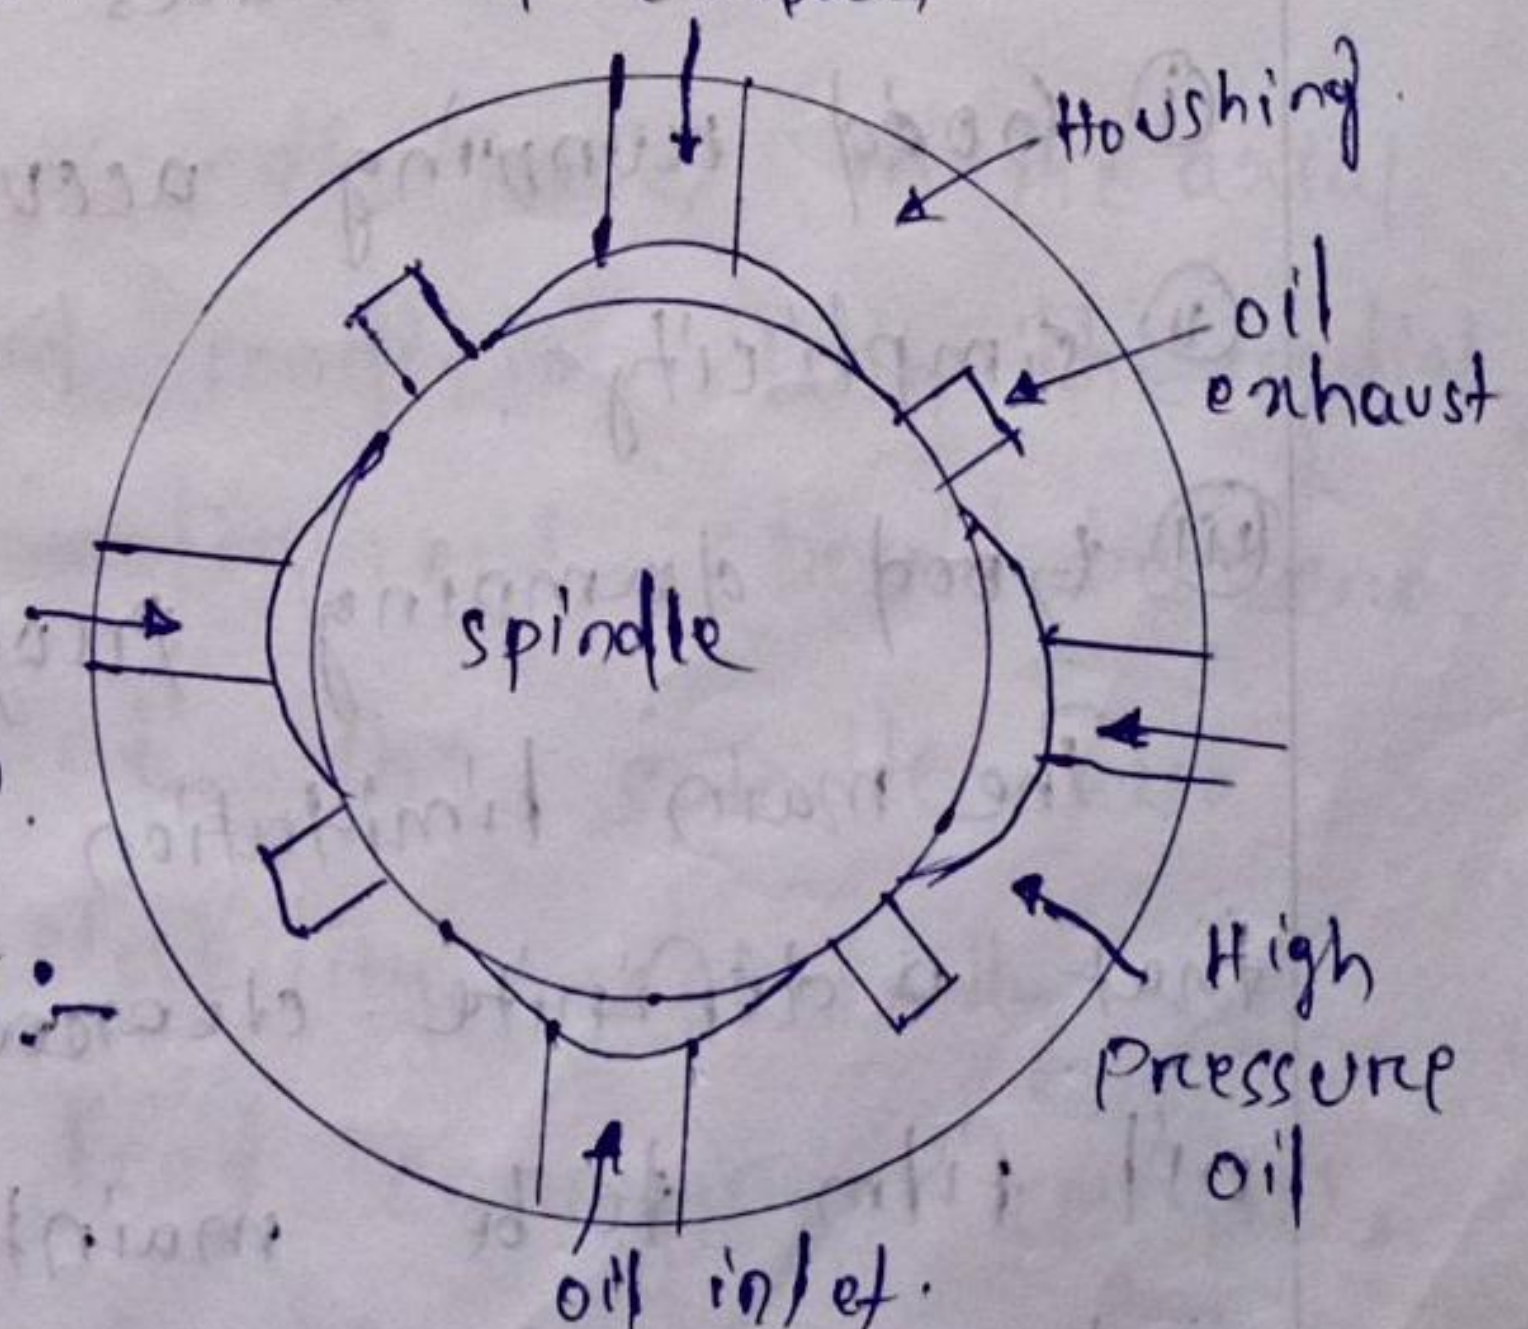 Houshing
oil
exhaust
spindle
High
pressure
oil
oil inlet.